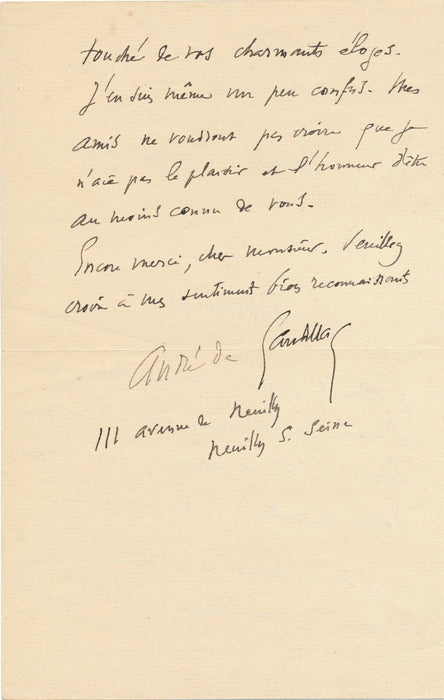 touché de vos charmants éloges.
J'en suis même un peu confus. Mes
amis ne voudront pas croire que je
n'aie pas le plaisir et l'honneur d'être
au moins connu de vous.
Encore merci, cher monsieur. Veuillez
croire à mes sentiments bien reconnaissants
André de
111 avenue de Neuilly
Neuilly s. Seine